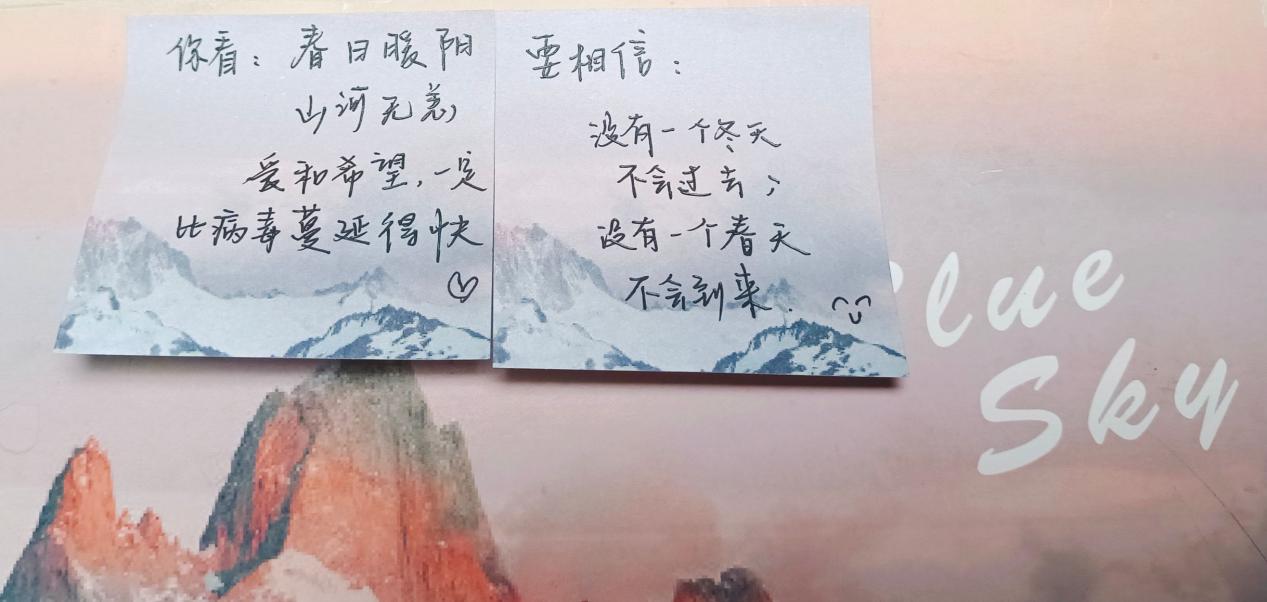 你看：春日暖阳
山河无恙，
爱和希望，一定
比病毒蔓延得快
要相信：
没有一个冬天
不会过去；
没有一个春天
不会到来.
Blue
Sky